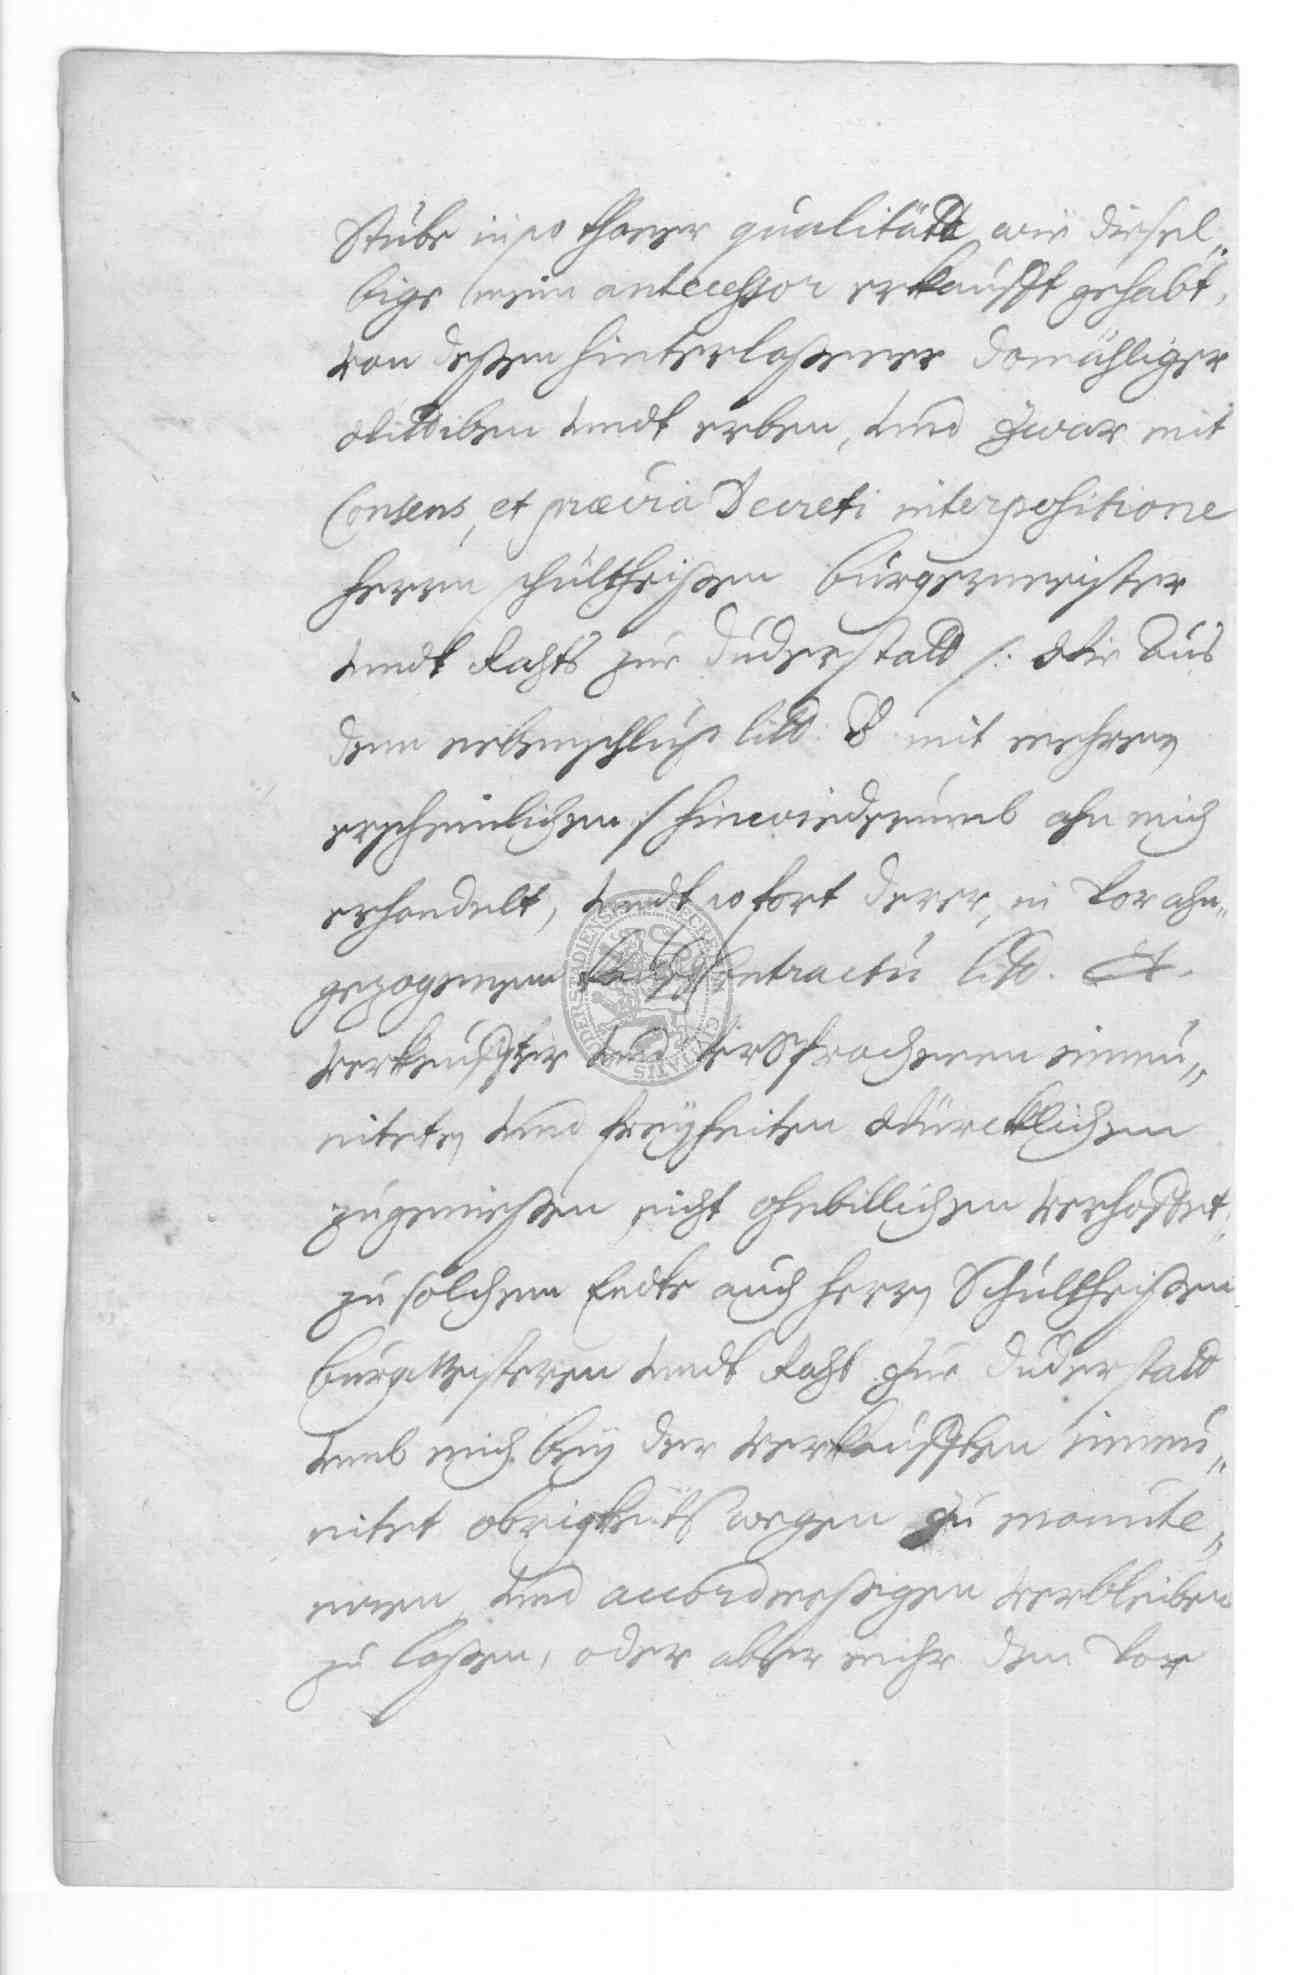 Stube in so thaner qualitätt wie diesel„
bige mein antecessor erkaufft gehabt,
von deßen hinterlaßener damähliger
Wittiben undt erben, und zwar mit
Consens, et prævia Decreti interpositione
herrn schultheißen burgermeister
undt Rahts zue Duderstatt /: Wie aus
dem nebenschluß litt. B mit mehrem
erscheinlichen :/ hinwiederumb ahn mich
erhandelt, undt so fort derer, in vor ahn„
gezogenem Kauff Contractu litt. A.
verkauffter und versprochenen immu„
niteten und freyheiten Würcklichen
zugenießen nicht ohnbillichen verhoffet,
zu solchem Endte auch herrn Schultheißen
burgmeisteren undt Raht zue Duderstatt
umb mich bey der verkaufften immu„
nitet obrigkeits wegen zu manute„
niren und accordmeßigen verbleiben
zu laßen, oder aber mihr den vor
SECRET CIVITATIS DUDERSTADIENSIS